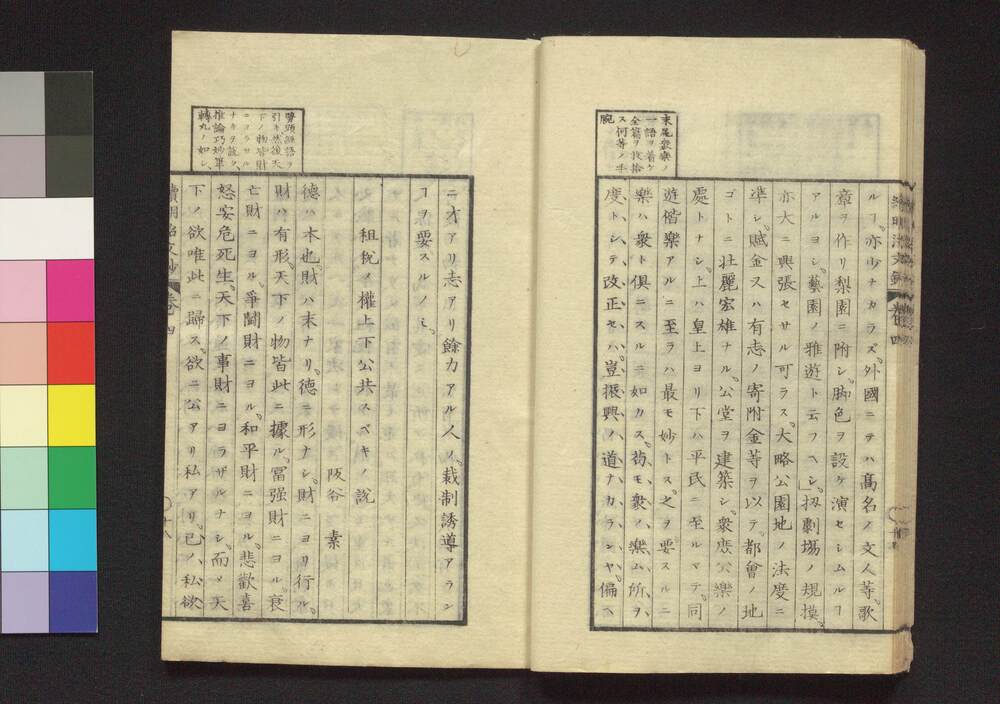 末尾衆楽ノ
一語ヲ着ケ
全篇ヲ收拾
ス何等ノ手
腕
ルヿ亦少ナカラズ。外國ニテハ高名ノ文人等。歌
章ヲ作リ梨園ニ附シ。脚色ヲ設ケ演セシムルヿ
アルヨシ。藝園ノ雅遊ト云フヘシ。扨劇場ノ規摸。
亦大ニ興張セサル可ラス。大略公園地ノ法度ニ
準シ。賦金又ハ有志ノ寄附金等ヲ以テ。都會ノ地
ゴトニ壮麗宏雄ナル。公堂ヲ建築シ。衆庶公樂ノ
處トナシ。上ハ皇上ヨリ下ハ平民ニ至ルマテ。同
遊偕樂アルニ至ラハ最モ妙トス。之ヲ要スルニ
樂ハ衆ト俱ニスルニ如カス。苟モ衆ノ樂ム所ヲ
度トシテ改正セハ。豈振興ノ道ナカランヤ。偏ヘ
ニ才アリ志アリ餘力アル人ノ。裁制誘導アラン
ヿヲ要スルノミ。
租税ノ權上下公共スベキノ説
阪谷 素
劈頭經語ヲ
引キ然後天
下ノ物皆財
ニヨラサル
ナキヲ説ク
推論巧妙単
轉丸ノ如シ
德ハ本也。財ハ末ナリ。德ニ形ナシ。財ニヨリ行ル。
財ハ有形天下ノ物皆此ニ據ル。富强財ニヨル。衰
亡財ニヨル。爭鬪財ニヨル。和平財ニヨル。悲歡喜
怒安危死生。天下ノ事財ニヨラザルナシ。而メ天
下ノ欲唯此ニ歸ス。欲ニ公アリ私アリ。己ノ私欲
卷四